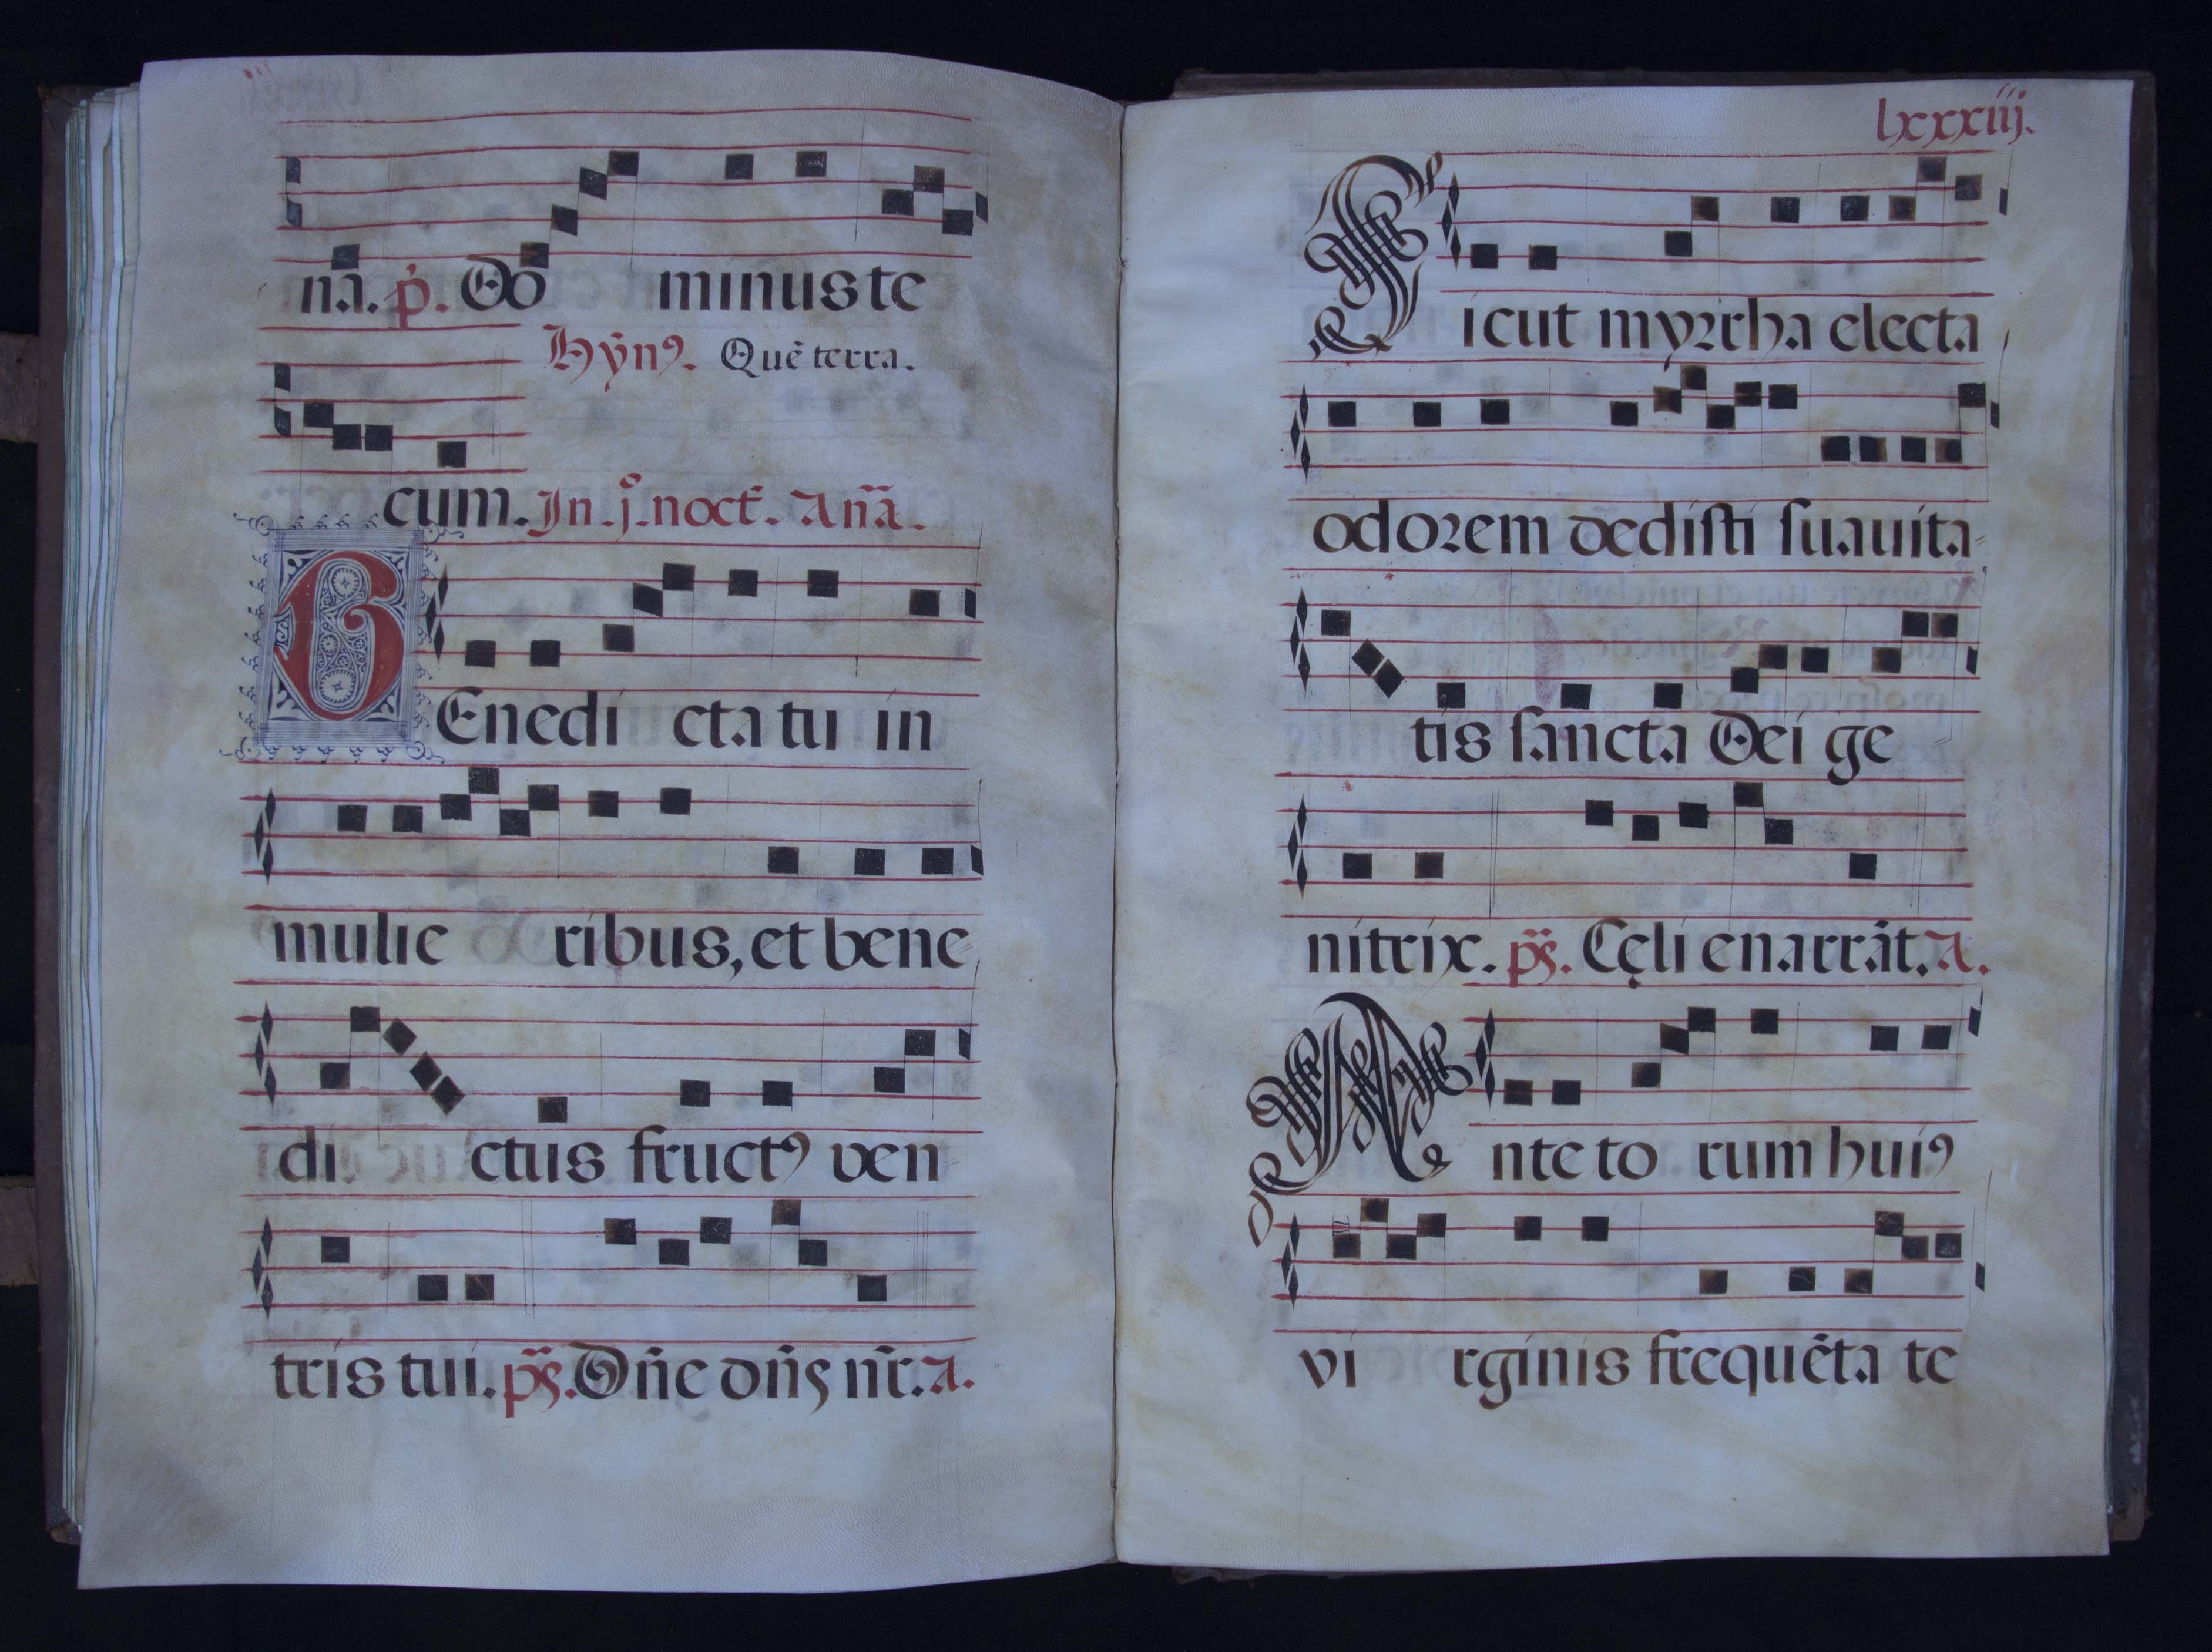 nã. p̃. Do minus te
Hỹnꝰ. Quẽ terra.
cum. In .j.º noct̃. Añã.
BEnedi cta tu in
mulie ribus, et bene
di ctus fructꝰ ven
tris tui. ps̃. Dñe dñs nr̃. A.
lxxxiij.
Sicut myrrha electa
odorem dedisti suauita
tis sancta Dei ge
nitrix. ps̃. Cęli enarrãt. A.
Ante to rum huiꝰ
vi rginis frequẽta te